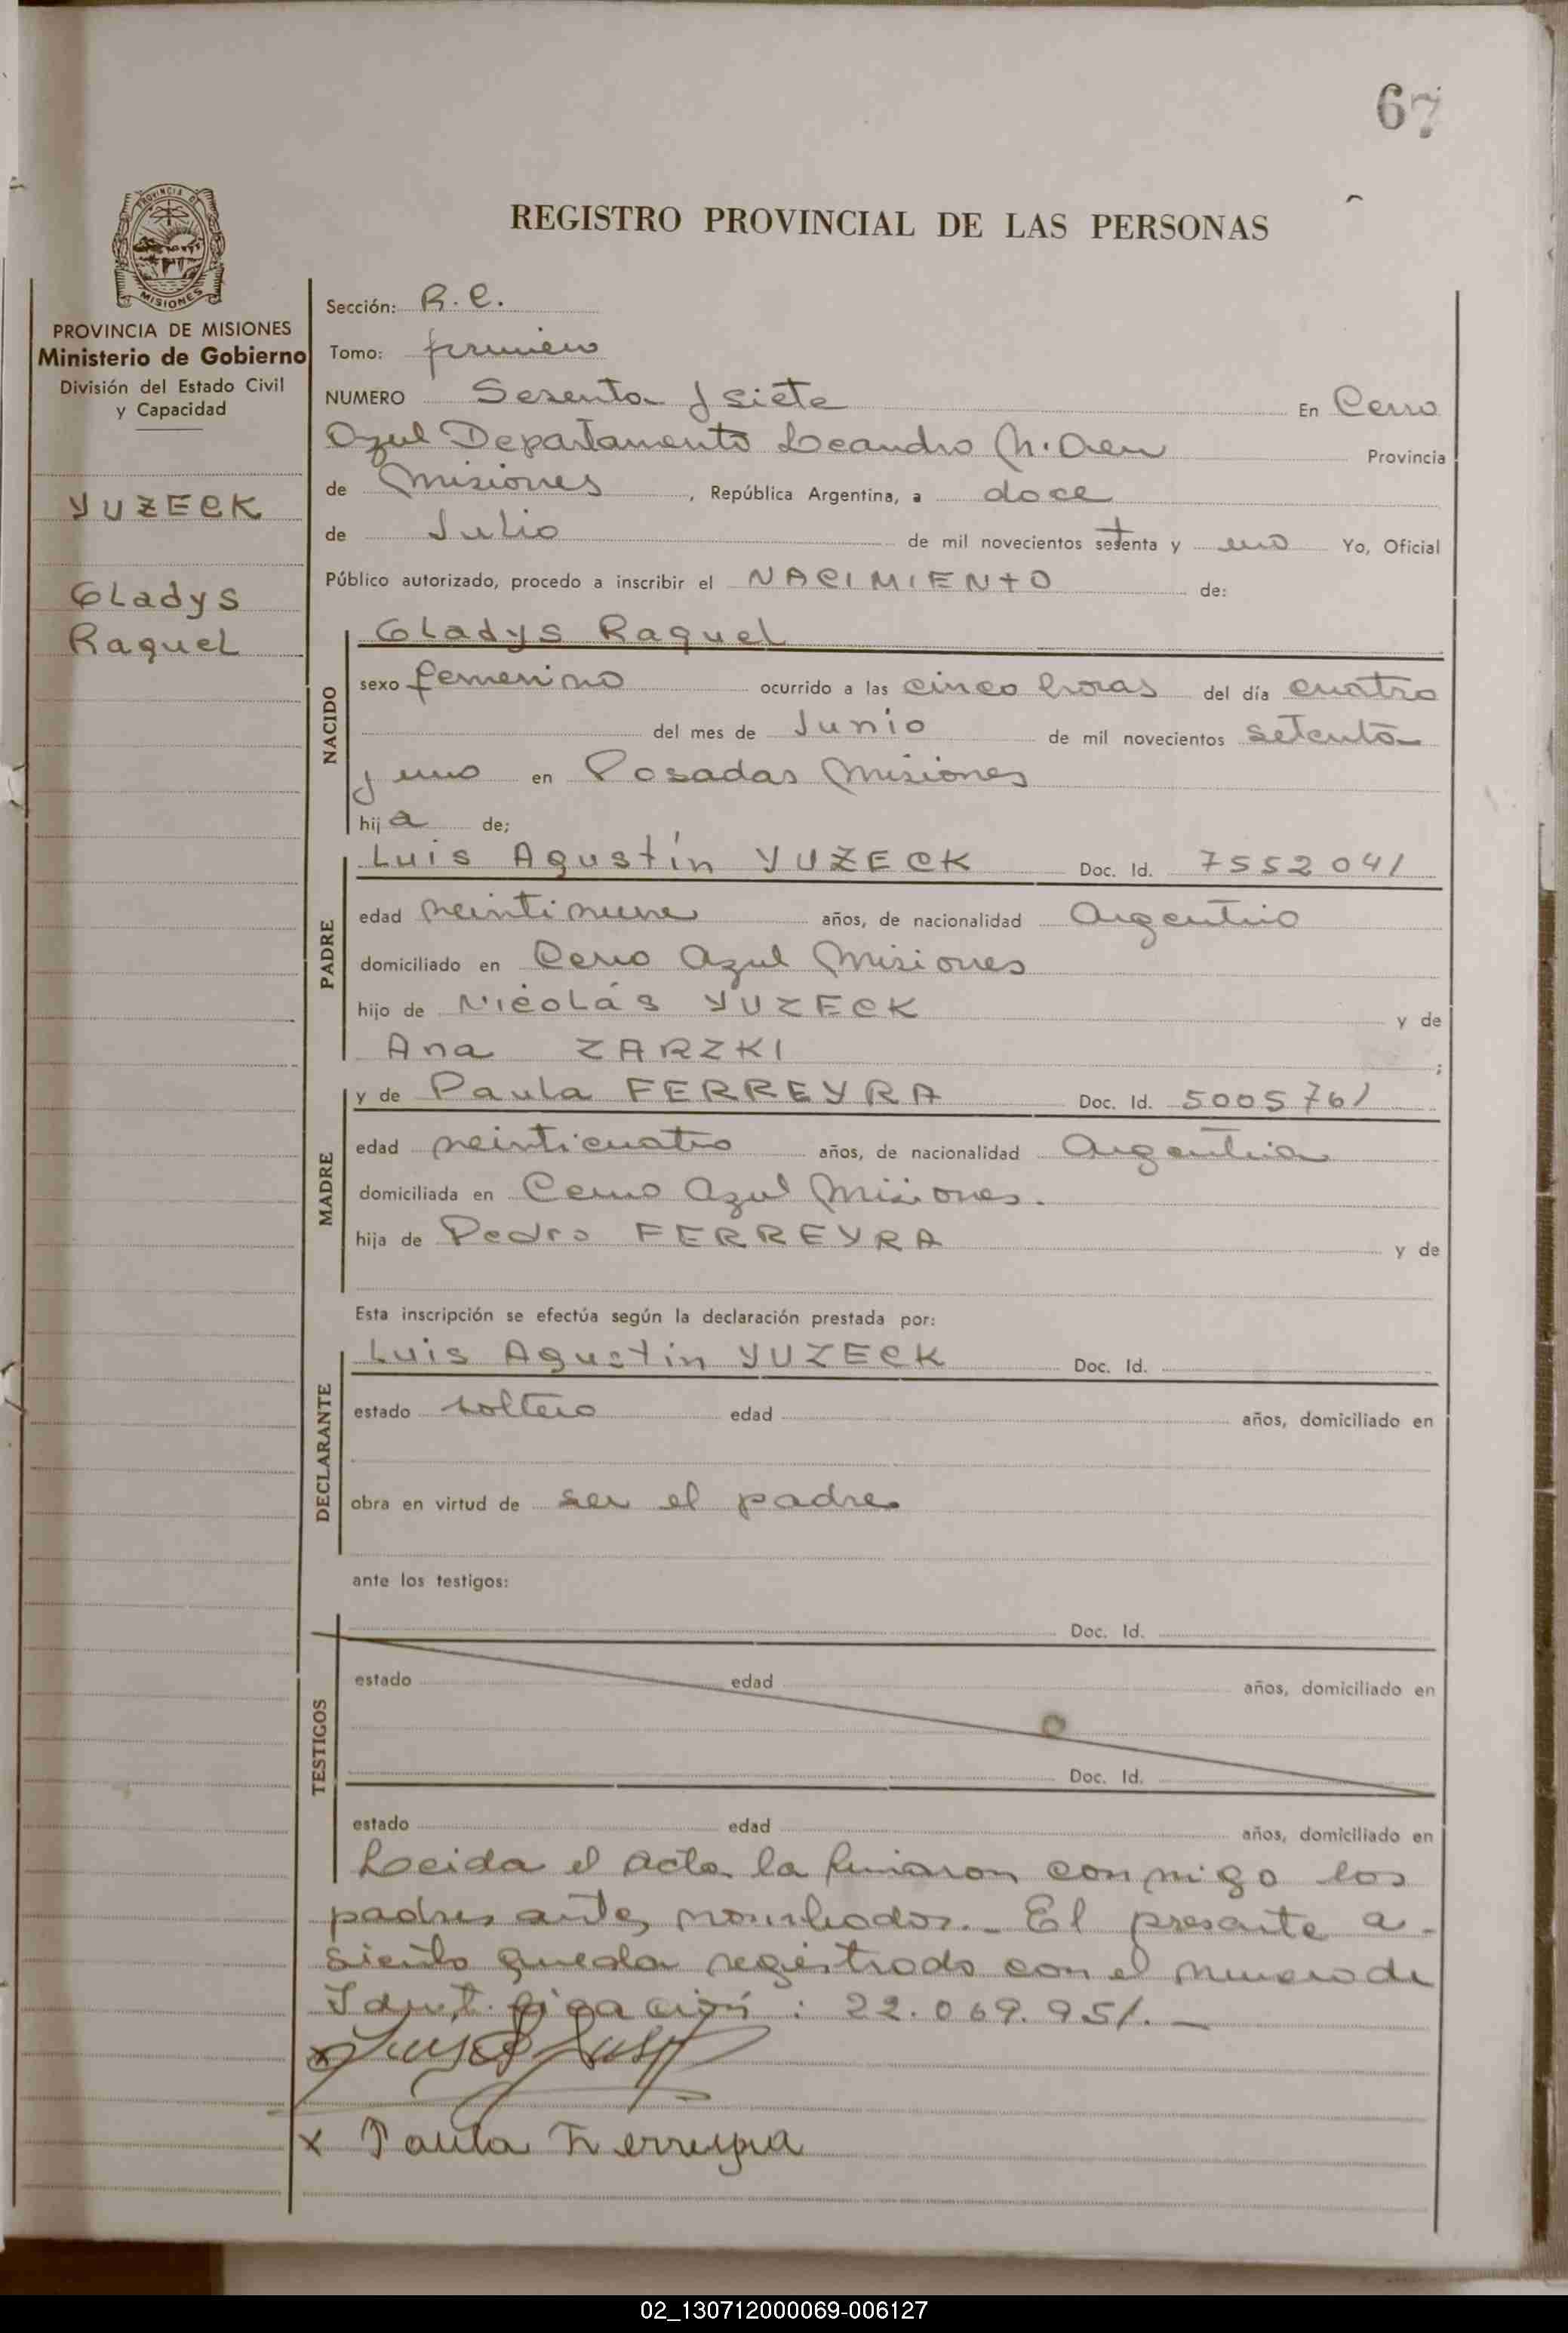 67
PROVINCIA DE
MISIONES
REGISTRO PROVINCIAL DE LAS PERSONAS
PROVINCIA DE MISIONES
Ministerio de Gobierno
División del Estado Civil
y Capacidad
YUZECK
Gladys
Raquel
Sección: R.C.
Tomo: primero
NUMERO Sesenta y siete En Cerro
Azul Departamento Leandro N. Alem Provincia
de Misiones, República Argentina, a doce
de Julio de mil novecientos setenta y uno Yo, Oficial
Público autorizado, procedo a inscribir el NACIMIENTO de:
NACIDO
Gladys Raquel
sexo femenino ocurrido a las cinco horas del día cuatro
del mes de Junio de mil novecientos setenta
y uno en Posadas Misiones
hija de;
PADRE
Luis Agustín YUZECK Doc. Id. 7552041
edad veintinueve años, de nacionalidad Argentino
domiciliado en Cerro Azul Misiones
hijo de Nicolás YUZECK y de
Ana ZARZKI ;
MADRE
y de Paula FERREYRA Doc. Id. 5005761
edad veinticuatro años, de nacionalidad Argentina
domiciliada en Cerro Azul Misiones.
hija de Pedro FERREYRA y de
Esta inscripción se efectúa según la declaración prestada por:
DECLARANTE
Luis Agustin YUZECK Doc. Id.
estado soltero edad años, domiciliado en
obra en virtud de ser el padre
ante los testigos:
TESTIGOS
Doc. Id.
estado edad años, domiciliado en
Doc. Id.
estado edad años, domiciliado en
Leida el acta la firmaron conmigo los
padres antes nombrados.- El presente a-
siento queda registrado con el numero de
Identificación: 22.069.951.-
x
x Paula Ferreyra
02_130712000069-006127